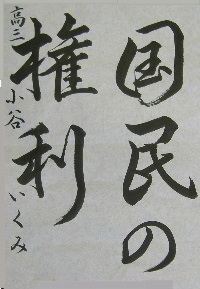 国民の
権利
高三 小谷いくみ